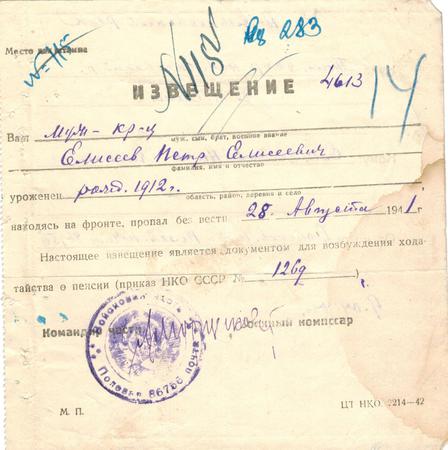 Вх 283
Место для штампа
№118
№118
ИЗВЕЩЕНИЕ
4613
14
Ваш муж - кр-ц
муж, сын, брат, военное звание
Елисеев Петр Елисеевич
фамилия, имя и отчество
уроженец рожд. 1912 г.
область, район, деревня и село
находясь на фронте, пропал без вести 28 Августа 1941 г.
Настоящее извещение является документом для возбуждения хода-
тайства о пенсии (приказ НКО СССР № 126д )
Командир части
Военный комиссар
М. П.
ЦТ НКО. 2214—42